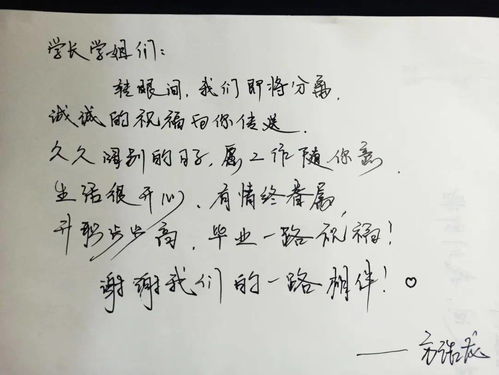 学长学姐们:
转眼间,我们即将分离,
诚诚的祝福向你传送.
久久阔别的日子,愿工作随你意,
生活很开心,有情终眷属,
升职步步高,毕业一路祝福!
谢谢我们的一路相伴!♡
——方浩龙